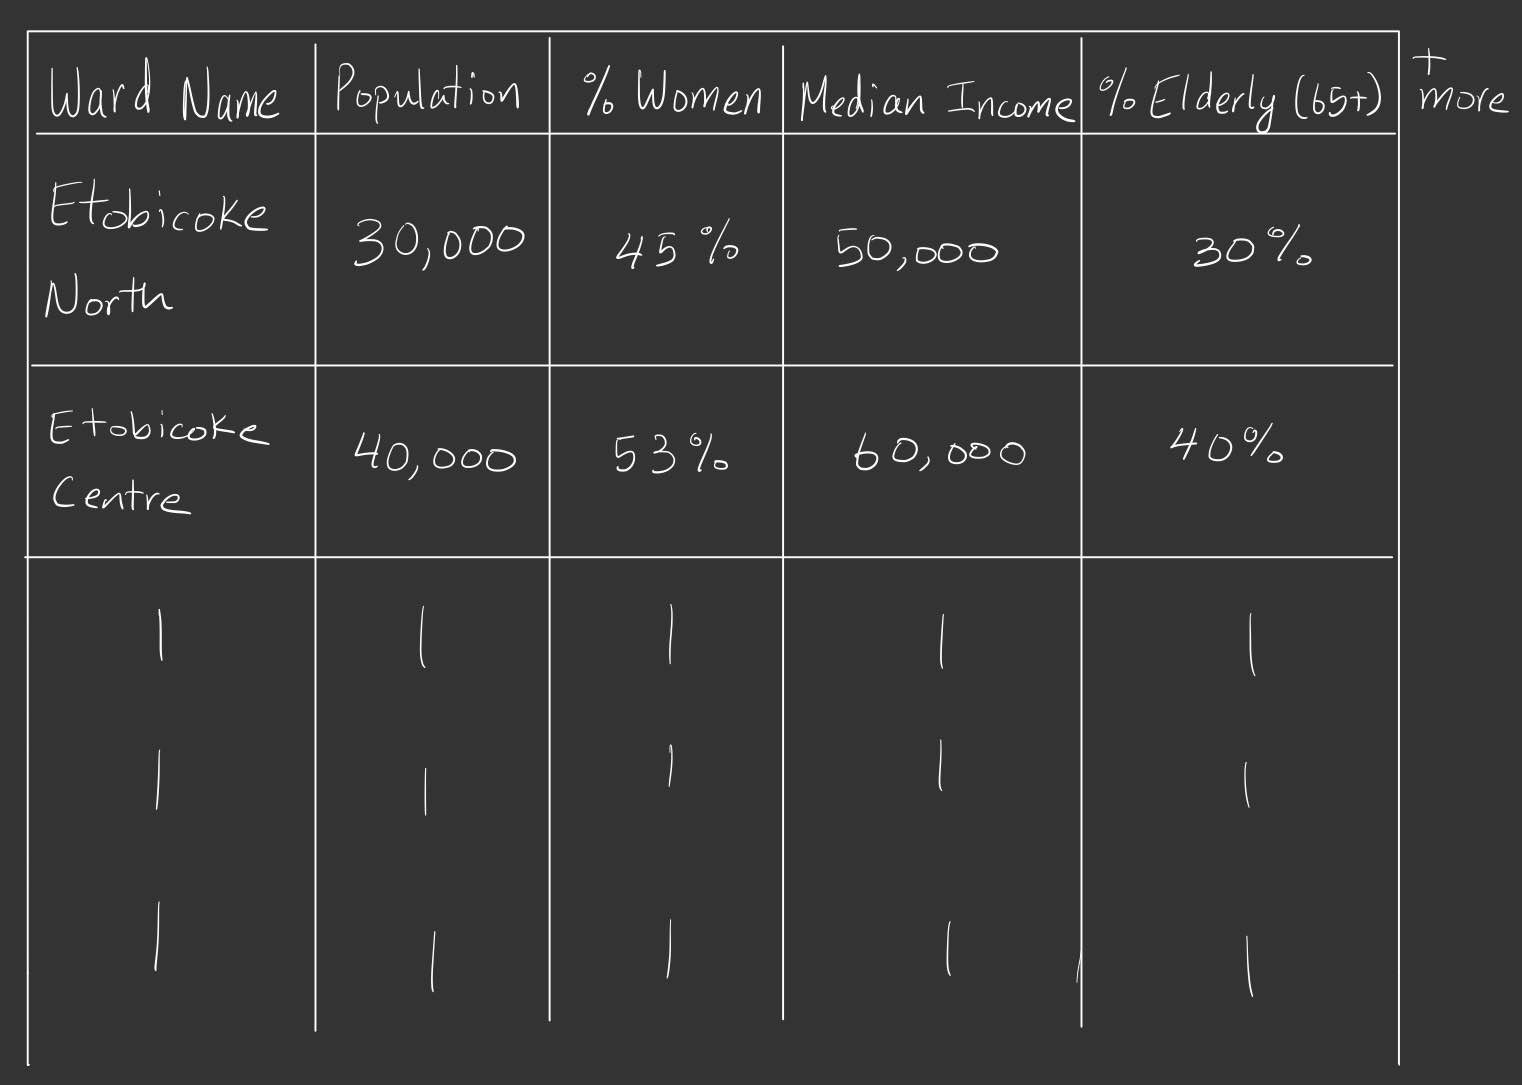 Ward Name Population % Women Median Income % Elderly (65+) + more
Etobicoke North 30,000 45% 50,000 30%
Etobicoke Centre 40,000 53% 60,000 40%
| | | | |
| | | | |
| | | | |